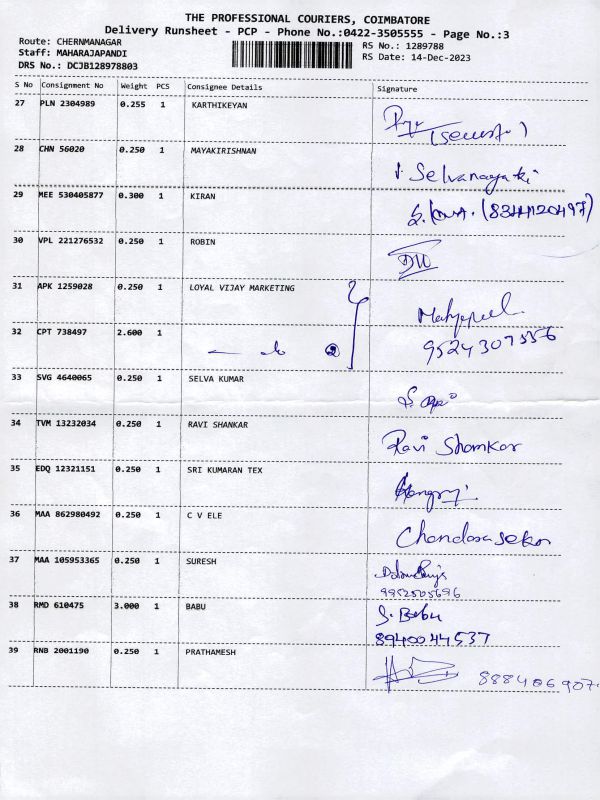 THE PROFESSIONAL COURIERS, COIMBATORE
Delivery Runsheet - PCP - Phone No.:0422-3505555 - Page No.:3
Route: CHERNMANAGAR
Staff: MAHARAJAPANDI
DRS No.: DCJB128978803
RS No.: 1289788
RS Date: 14-Dec-2023
S No Consignment No Weight PCS Consignee Details Signature
27 PLN 2304989 0.255 1 KARTHIKEYAN
28 CHN 56020 0.250 1 MAYAKIRISHNAN Selvanayaki
29 MEE 530405877 0.300 1 KIRAN
30 VPL 221276532 0.250 1 ROBIN
31 APK 1259028 0.250 1 LOYAL VIJAY MARKETING
32 CPT 738497 2.600 1 2 9524307556
33 SVG 4640065 0.250 1 SELVA KUMAR
34 TVM 13232034 0.250 1 RAVI SHANKAR Ravi Shankar
35 EDQ 12321151 0.250 1 SRI KUMARAN TEX
36 MAA 862980492 0.250 1 C V ELE Chandrasekar
37 MAA 105953365 0.250 1 SURESH
9952505696
38 RMD 610475 3.000 1 BABU S. Babu
8940044537
39 RNB 2001190 0.250 1 PRATHAMESH